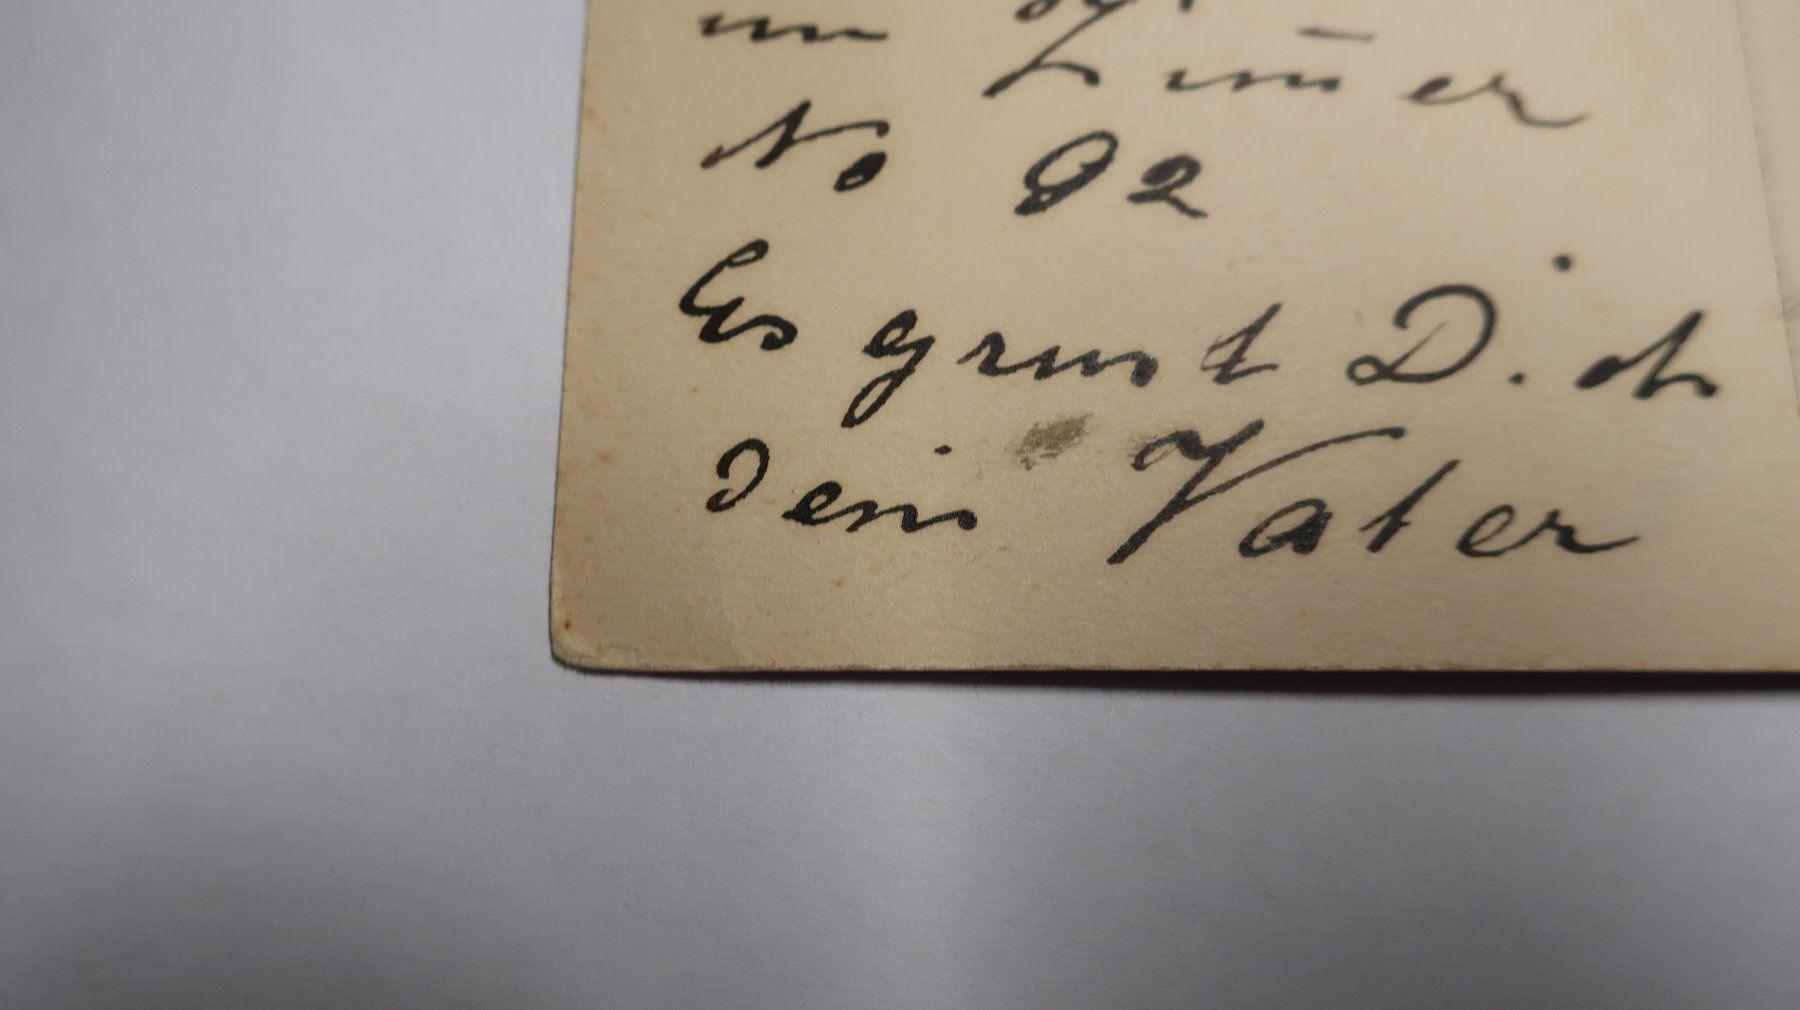 im Zim̅er
No 92
Es grust Dich
dein Vater